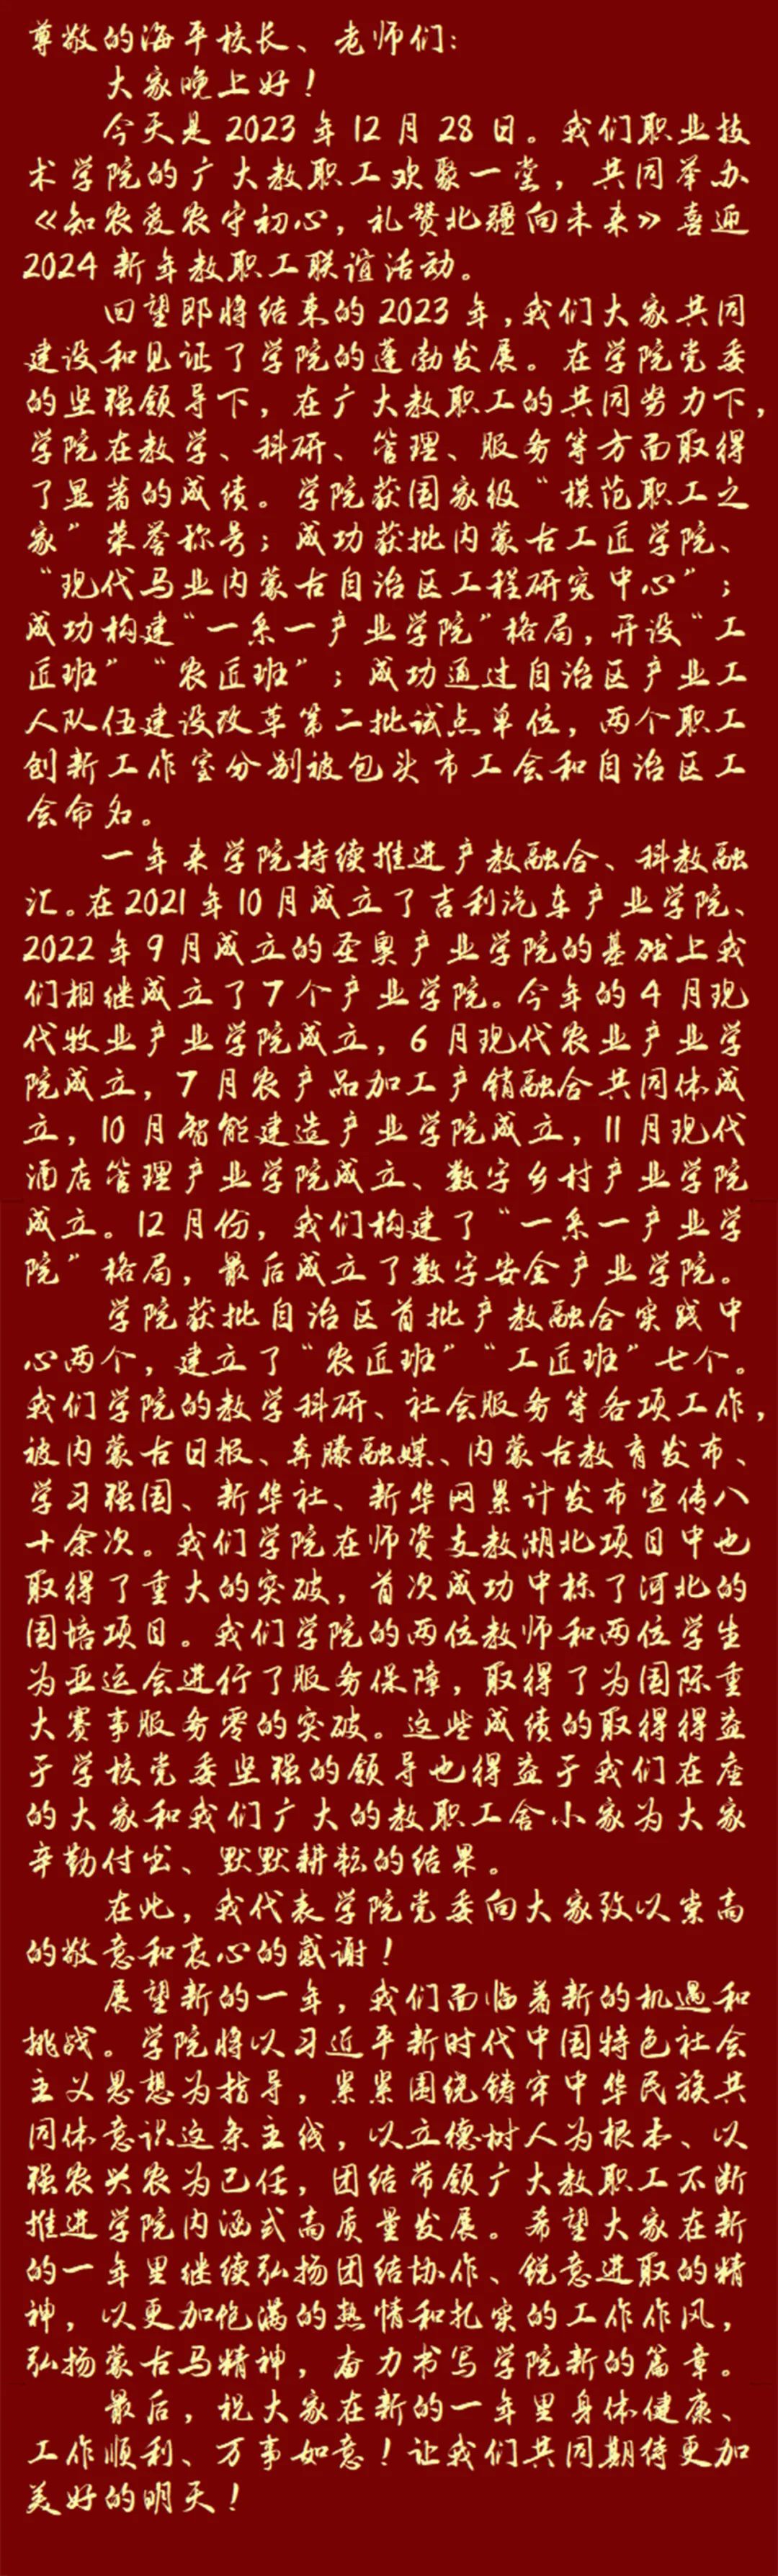 尊敬的海平校长、老师们:
大家晚上好!
今天是2023年12月28日。我们职业技
术学院的广大教职工欢聚一堂，共同举办
《知农爱农守初心，礼赞北疆向未来》喜迎
2024新年教职工联谊活动。
回望即将结束的2023年,我们大家共同
建设和见证了学院的蓬勃发展。在学院党委
的坚强领导下，在广大教职工的共同努力下，
学院在教学、科研、管理、服务等方面取得
了显著的成绩。学院获国家级“模范职工之
家”荣誉称号；成功获批内蒙古工匠学院、
“现代马业内蒙古自治区工程研究中心”；
成功构建“一系一产业学院”格局，开设“工
匠班”“农匠班”；成功通过自治区产业工
人队伍建设改革第二批试点单位，两个职工
创新工作室分别被包头市工会和自治区工
会命名。
一年来学院持续推进产教融合、科教融
汇。在2021年10月成立了吉利汽车产业学院、
2022年9月成立的圣奥产业学院的基础上我
们相继成立了7个产业学院。今年的4月现
代牧业产业学院成立，6月现代农业产业学
院成立，7月农产品加工产销融合共同体成
立，10月智能建造产业学院成立，11月现代
酒店管理产业学院成立、数字乡村产业学院
成立。12月份，我们构建了“一系一产业学
院”格局，最后成立了数字安全产业学院。
学院获批自治区首批产教融合实践中
心两个，建立了“农匠班”“工匠班”七个。
我们学院的教学科研、社会服务等各项工作，
被内蒙古日报、奔腾融媒、内蒙古教育发布、
学习强国、新华社、新华网累计发布宣传八
十余次。我们学院在师资支教湖北项目中也
取得了重大的突破，首次成功中标了河北的
国培项目。我们学院的两位教师和两位学生
为亚运会进行了服务保障，取得了为国际重
大赛事服务零的突破。这些成绩的取得得益
于学校党委坚强的领导也得益于我们在座
的大家和我们广大的教职工舍小家为大家
辛勤付出、默默耕耘的结果。
在此，我代表学院党委向大家致以崇高
的敬意和衷心的感谢!
展望新的一年，我们面临着新的机遇和
挑战。学院将以习近平新时代中国特色社会
主义思想为指导，紧紧围绕铸牢中华民族共
同体意识这条主线，以立德树人为根本、以
强农兴农为己任，团结带领广大教职工不断
推进学院内涵式高质量发展。希望大家在新
的一年里继续弘扬团结协作、锐意进取的精
神，以更加饱满的热情和扎实的工作作风，
弘扬蒙古马精神，奋力书写学院新的篇章。
最后，祝大家在新的一年里身体健康、
工作顺利、万事如意!让我们共同期待更加
美好的明天!